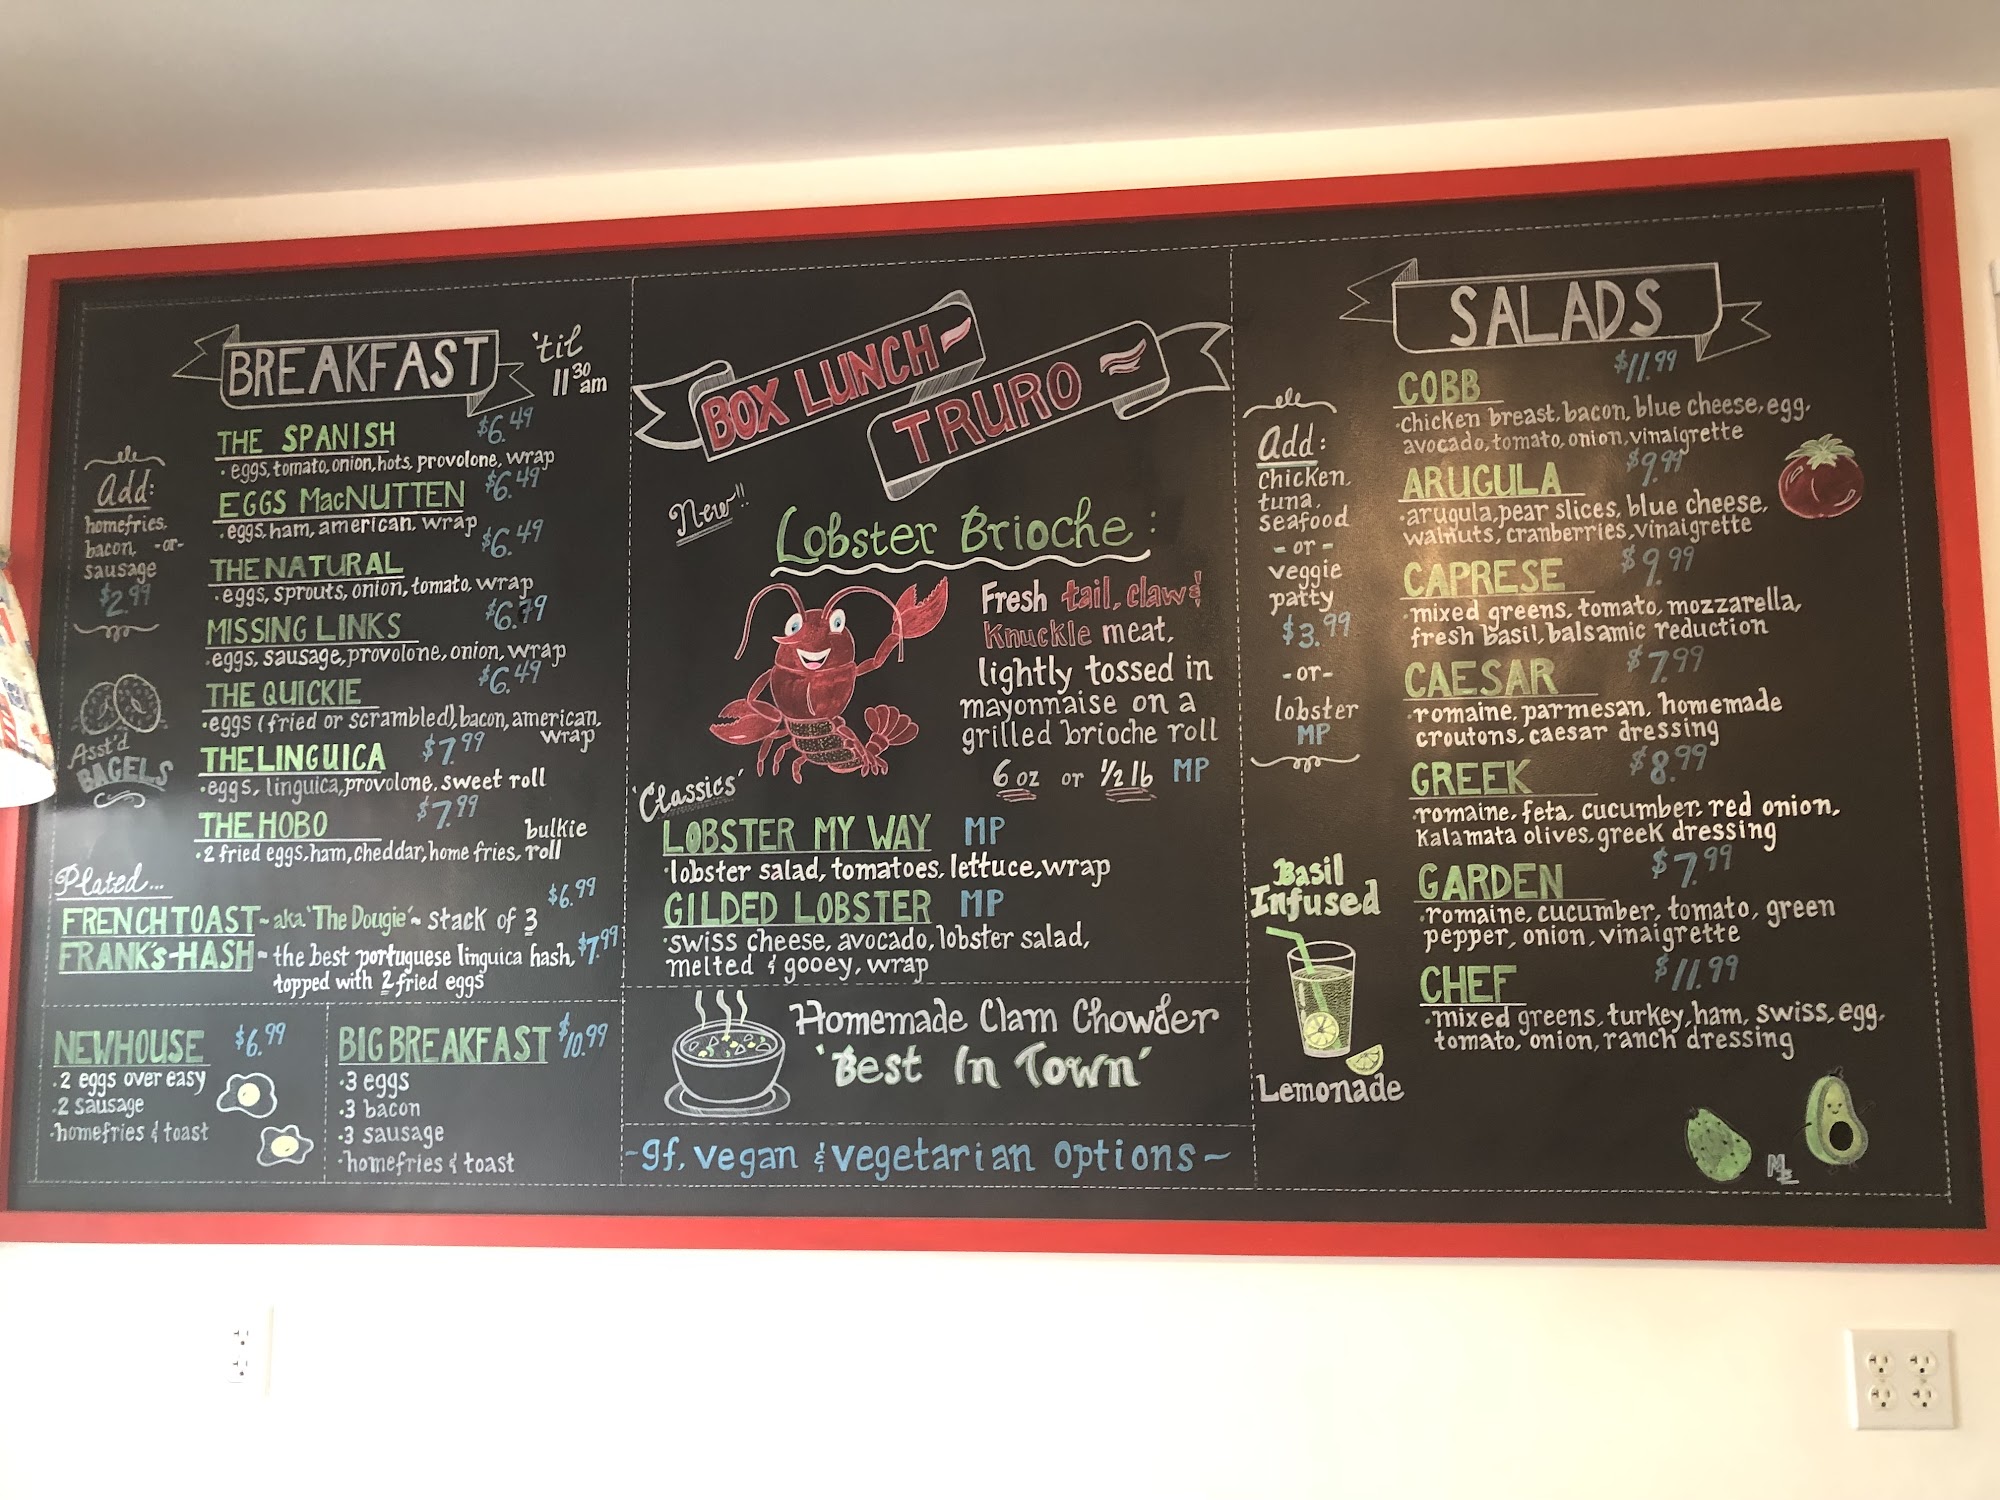 BREAKFAST 'til 11 30 am
Add:
homefries,
bacon, -or-
sausage
$2.99
Asst'd
BAGELS
THE SPANISH $6.49
· eggs, tomato, onion, hots, provolone, wrap
EGGS MacNUTTEN $6.49
· eggs, ham, american, wrap
THE NATURAL $6.49
· eggs, sprouts, onion, tomato, wrap
MISSING LINKS $6.79
· eggs, sausage, provolone, onion, wrap
THE QUICKIE $6.49
· eggs (fried or scrambled), bacon, american,
wrap
THE LINGUICA $7.99
· eggs, linguica, provolone, sweet roll
THE HOBO $7.99
· 2 fried eggs, ham, cheddar, home fries, bulkie roll
Plated...
FRENCH TOAST ~ aka 'The Dougie' ~ stack of 3 $6.99
FRANK'S-HASH ~ the best portuguese linguica hash, $7.99
topped with 2 fried eggs
NEWHOUSE $6.99
· 2 eggs over easy
· 2 sausage
· homefries & toast
BIG BREAKFAST $10.99
· 3 eggs
· 3 bacon
· 3 sausage
· homefries & toast
BOX LUNCH
TRURO
New!!
Lobster Brioche:
Fresh tail, claw &
knuckle meat,
lightly tossed in
mayonnaise on a
grilled brioche roll
6 oz or 1/2 lb MP
'Classics'
LOBSTER MY WAY MP
· lobster salad, tomatoes, lettuce, wrap
GILDED LOBSTER MP
· swiss cheese, avocado, lobster salad,
melted & gooey, wrap
Homemade Clam Chowder
'Best In Town'
~gf, vegan & vegetarian options~
SALADS
Add:
chicken,
tuna,
seafood
- or -
veggie
patty
$3.99
-or-
lobster
MP
Basil
Infused
Lemonade
COBB $11.99
· chicken breast, bacon, blue cheese, egg,
avocado, tomato, onion, vinaigrette
ARUGULA $9.99
· arugula, pear slices, blue cheese,
walnuts, cranberries, vinaigrette
CAPRESE $9.99
· mixed greens, tomato, mozzarella,
fresh basil, balsamic reduction
CAESAR $7.99
· romaine, parmesan, homemade
croutons, caesar dressing
GREEK $8.99
· romaine, feta, cucumber, red onion,
kalamata olives, greek dressing
GARDEN $7.99
· romaine, cucumber, tomato, green
pepper, onion, vinaigrette
CHEF $11.99
· mixed greens, turkey, ham, swiss, egg,
tomato, onion, ranch dressing